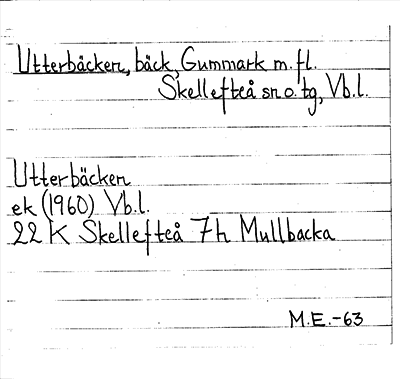 Utterbäcken, bäck, Gummark m.fl.
Skellefteå sn o. tg, Vb.l.
Utterbäcken
ek (1960) Vb.l.
22 K Skellefteå 7h Mullbacka
M.E.-63